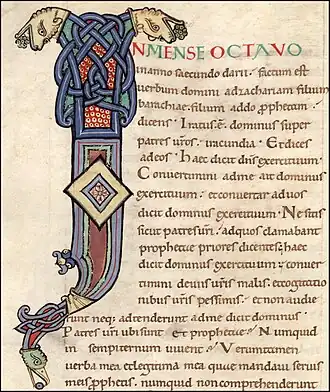 INMENSE OCTAVO
in anno saecundo darii · factum est
uerbum domini ad zachariam filium
barachiae · filium addo prophetam
dicens · Iratus ē dominus super
patres uros iracundia · Et dices
ad eos · Haec dicit dns exercituum ·
Conuertimini ad me ait dominus
exercituum · et conuertar ad uos
dicit dominus exercituum · Ne sitis
sicut patres uri · ad quos clamabant
prophetae priores dicentes · haec
dicit dominus exercituum · conuer
timini de uiis uris malis · et cogitatio
nibus uris pessimis · et non audie
runt neq; adtenderunt ad me dicit dominus ·
Patres uri ubi sunt et prophetae · Numquid
in sempiternum uiuent · Uerumtamen
uerba mea et legitima mea quae mandaui seruis
meis prophetis · numquid non comprehenderunt